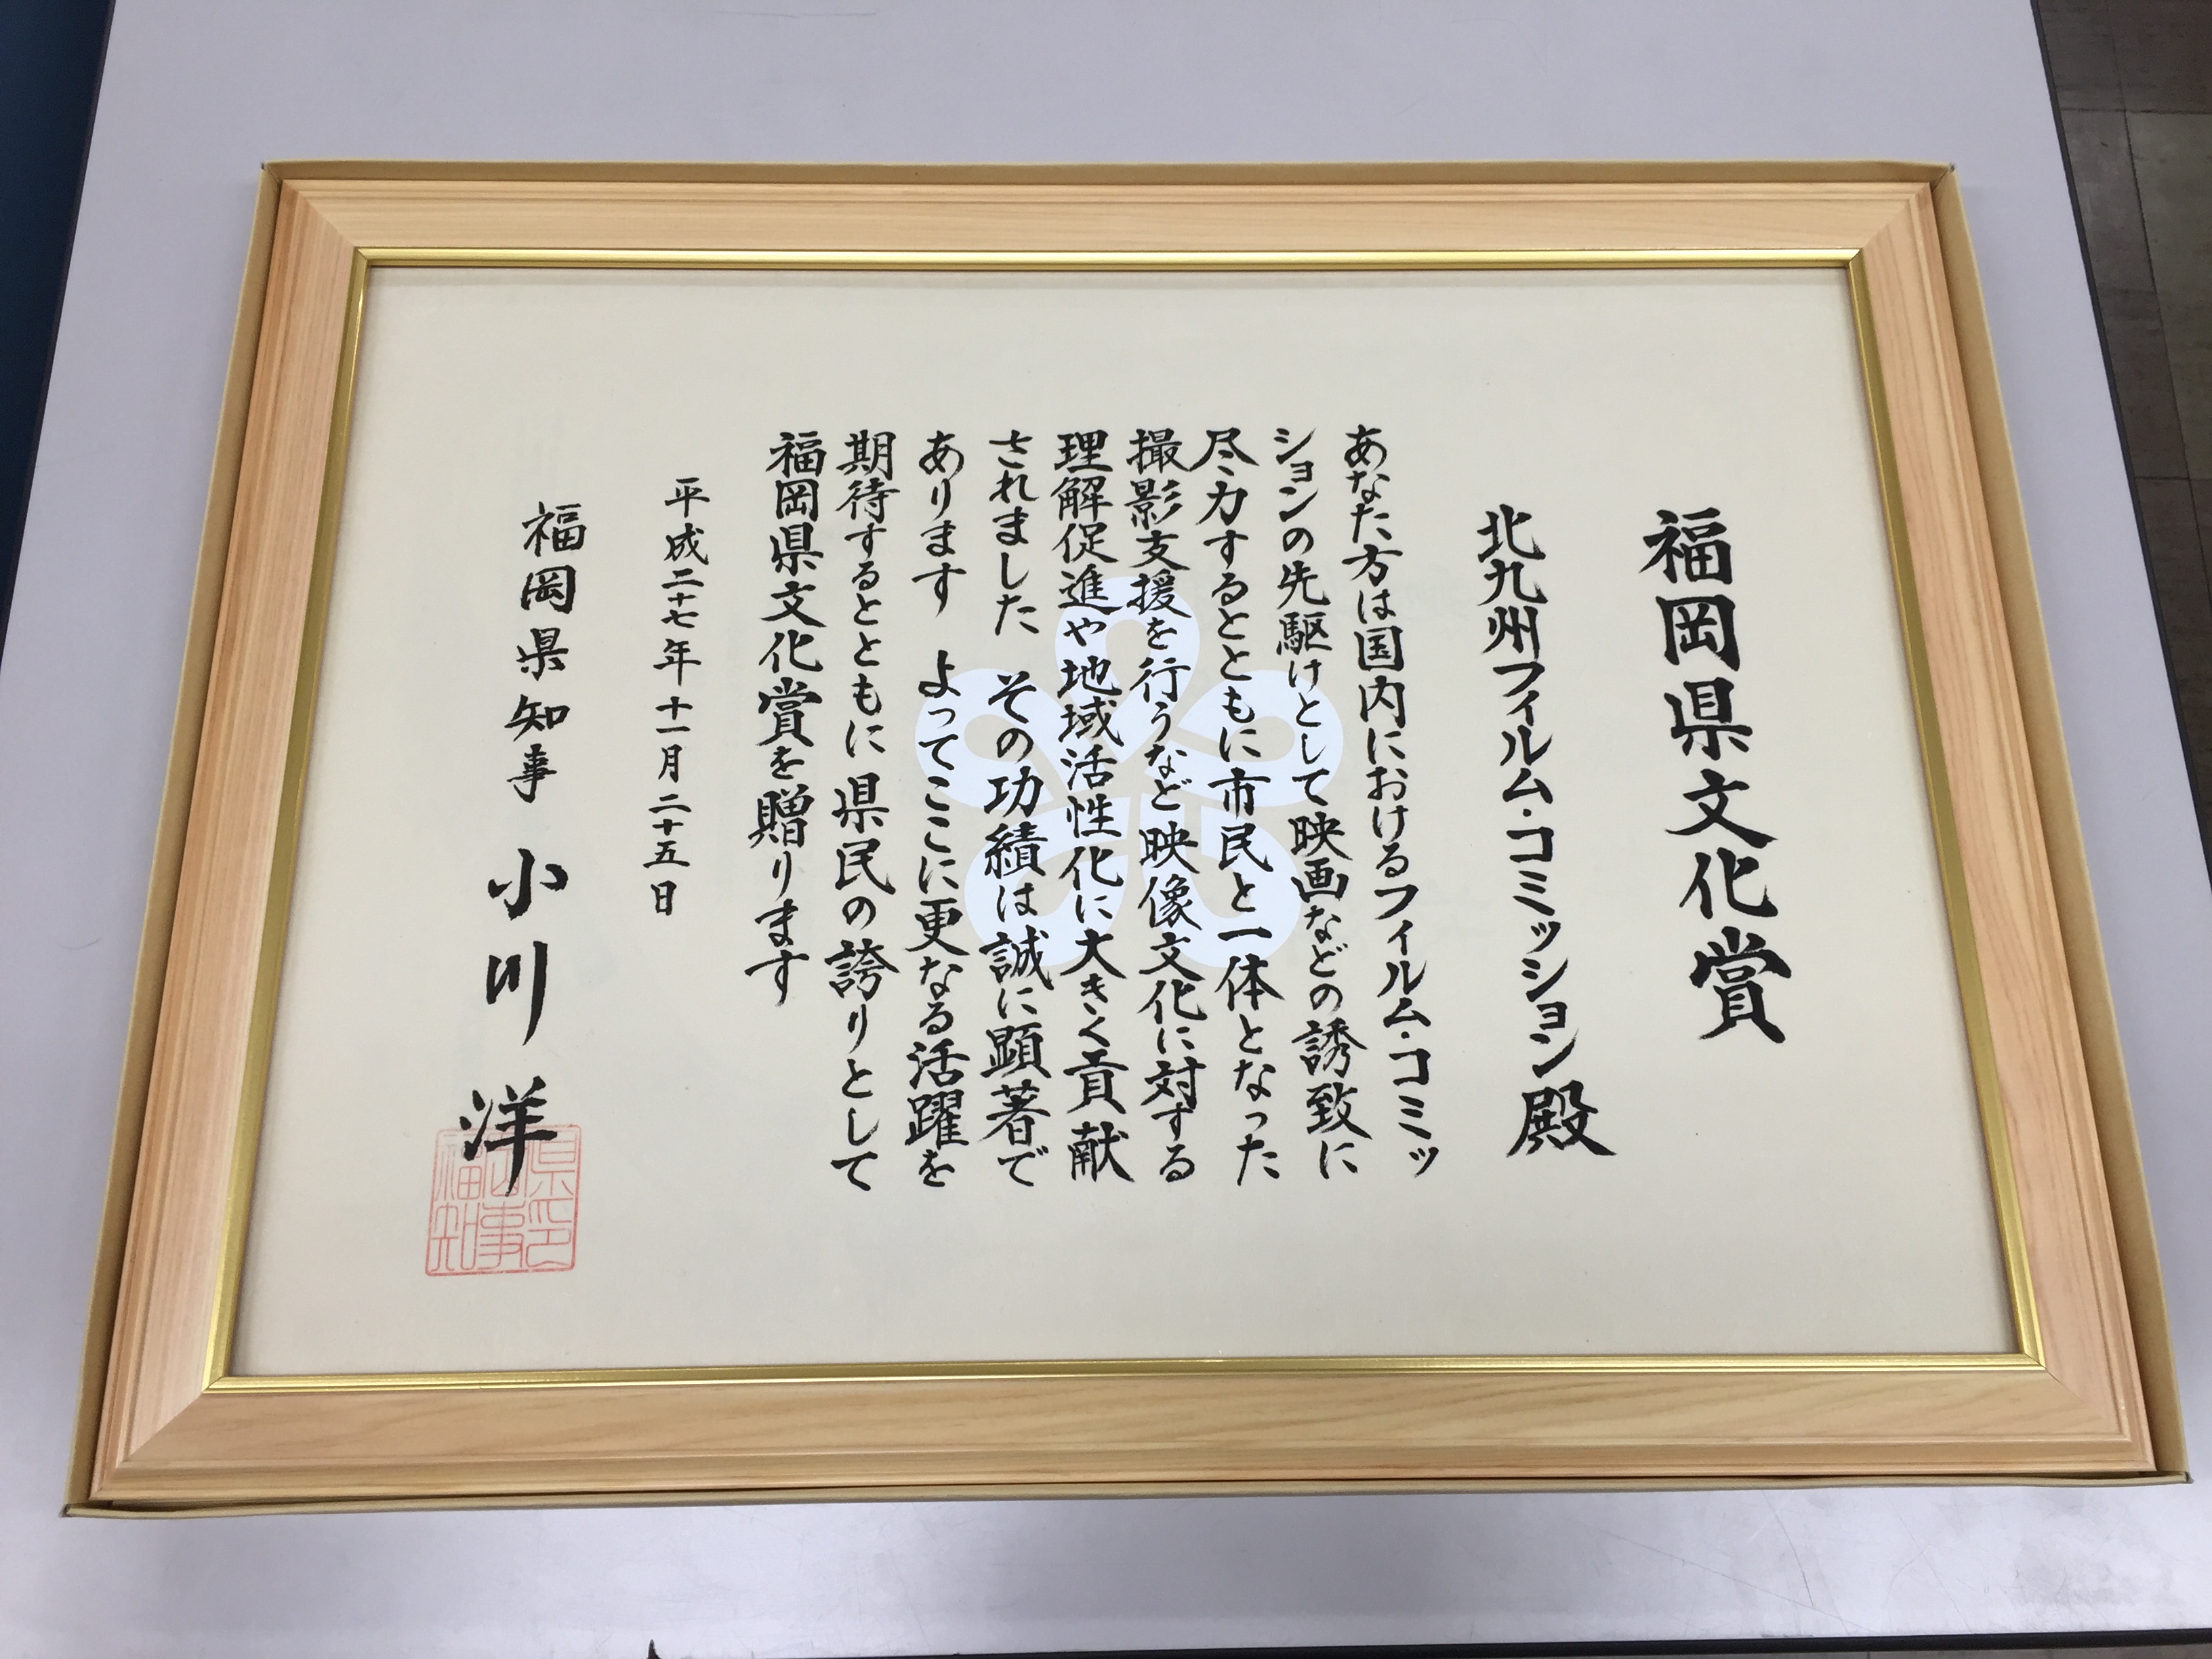 福岡県文化賞
北九州フィルム・コミッション殿
あなた方は国内におけるフィルム・コミッ
ションの先駆けとして映画などの誘致に
尽力するとともに市民と一体となった
撮影支援を行うなど映像文化に対する
理解促進や地域活性化に大きく貢献
されました その功績は誠に顕著で
あります よってここに更なる活躍を
期待するとともに県民の誇りとして
福岡県文化賞を贈ります
平成二十七年十一月二十五日
福岡県知事 小川 洋